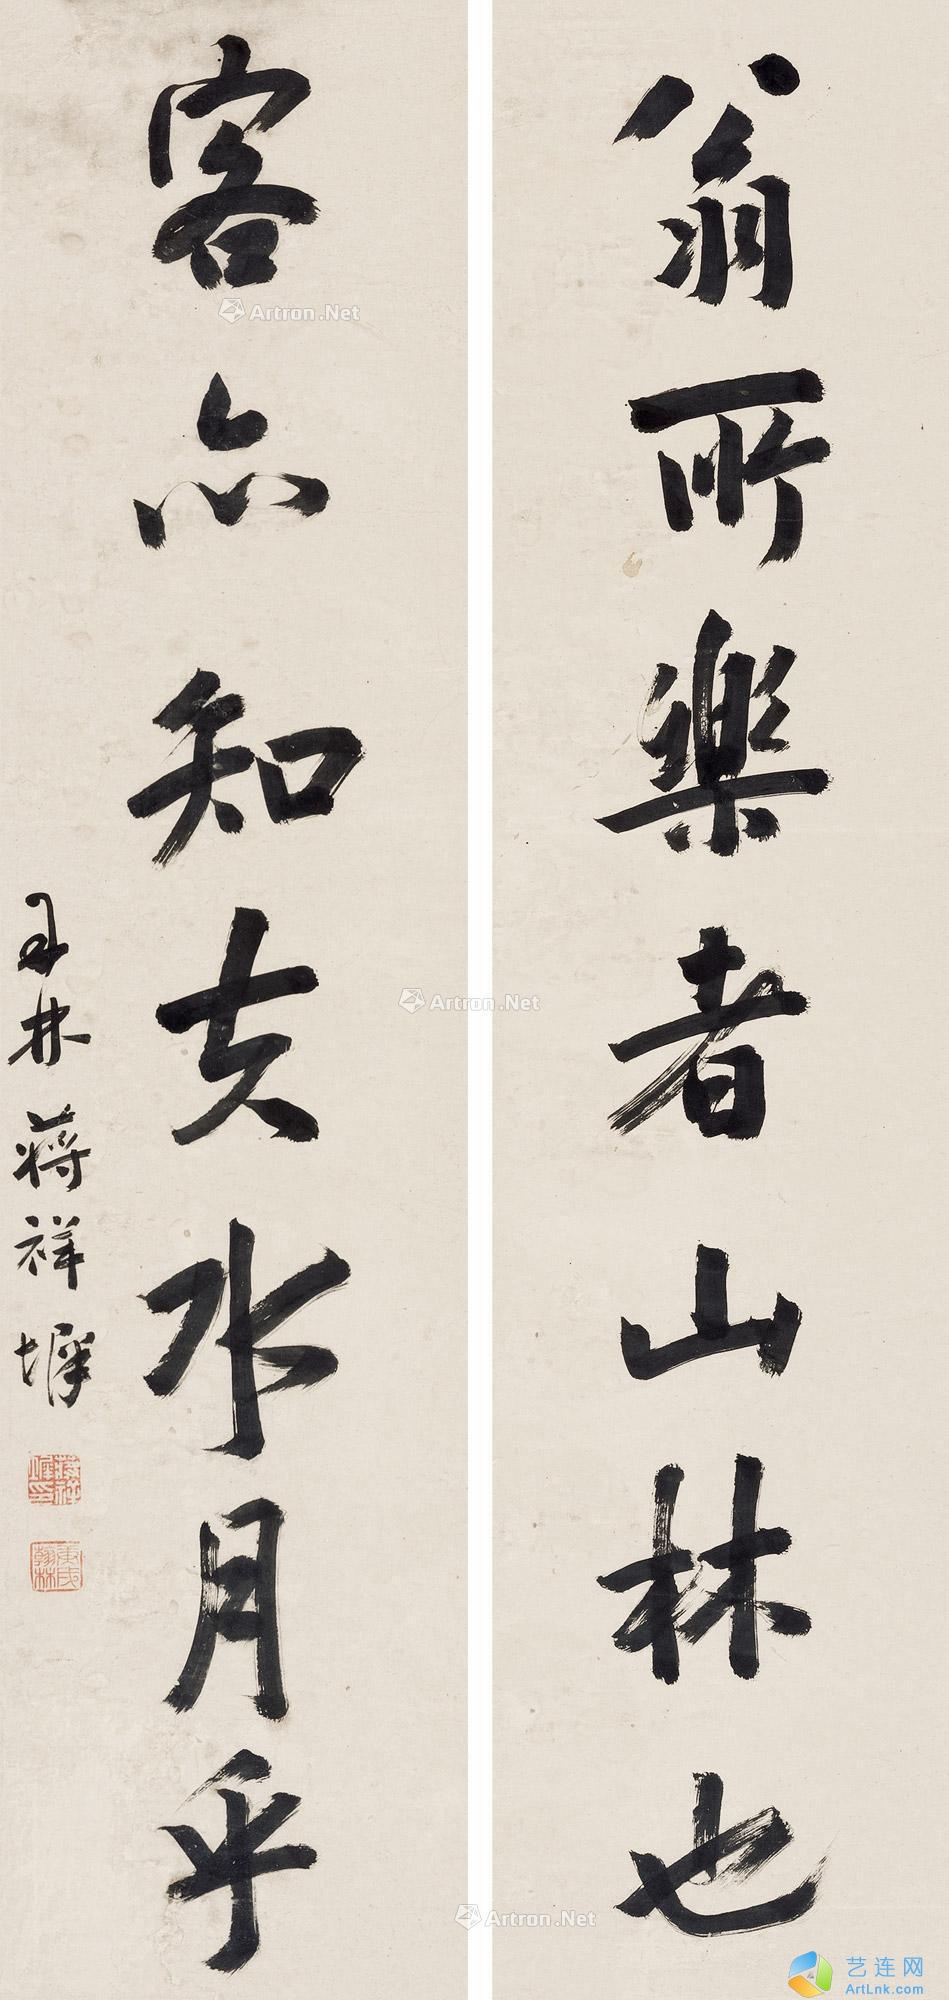 翁所樂者山林也
客亦知夫水月乎
丹林蔣祥墀
蔣祥墀印
庚戌翰林
Artron.Net
Artron.Net
Artron.Net
艺连网
ArtLnk.com